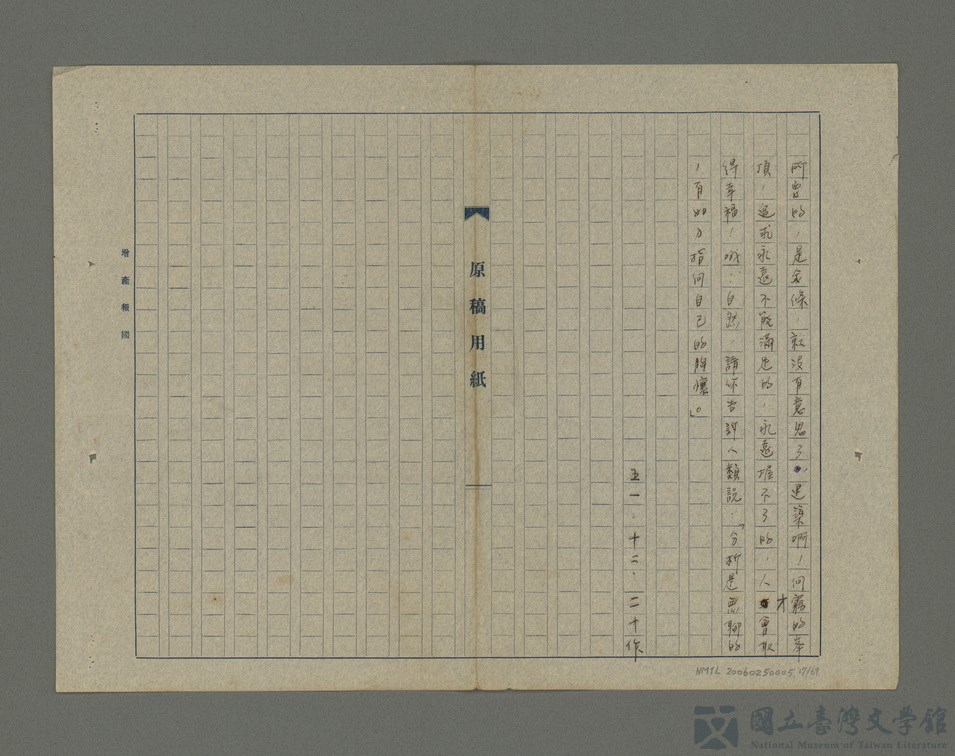 所曾的，是念條，就沒有意思了。建築啊，向窮的幸
項，追求永遠不能滿足的，永遠壓不了的，人才會取
得幸福，哦：自然，請你告訴人類說：「分析是無聊的
，有如刀指向自己的胸懷」。
五一．十二．二十作
原稿用紙
增產報國
NMTL 20060250005 17/69
國立臺灣文學館
National Museum of Taiwan Literature